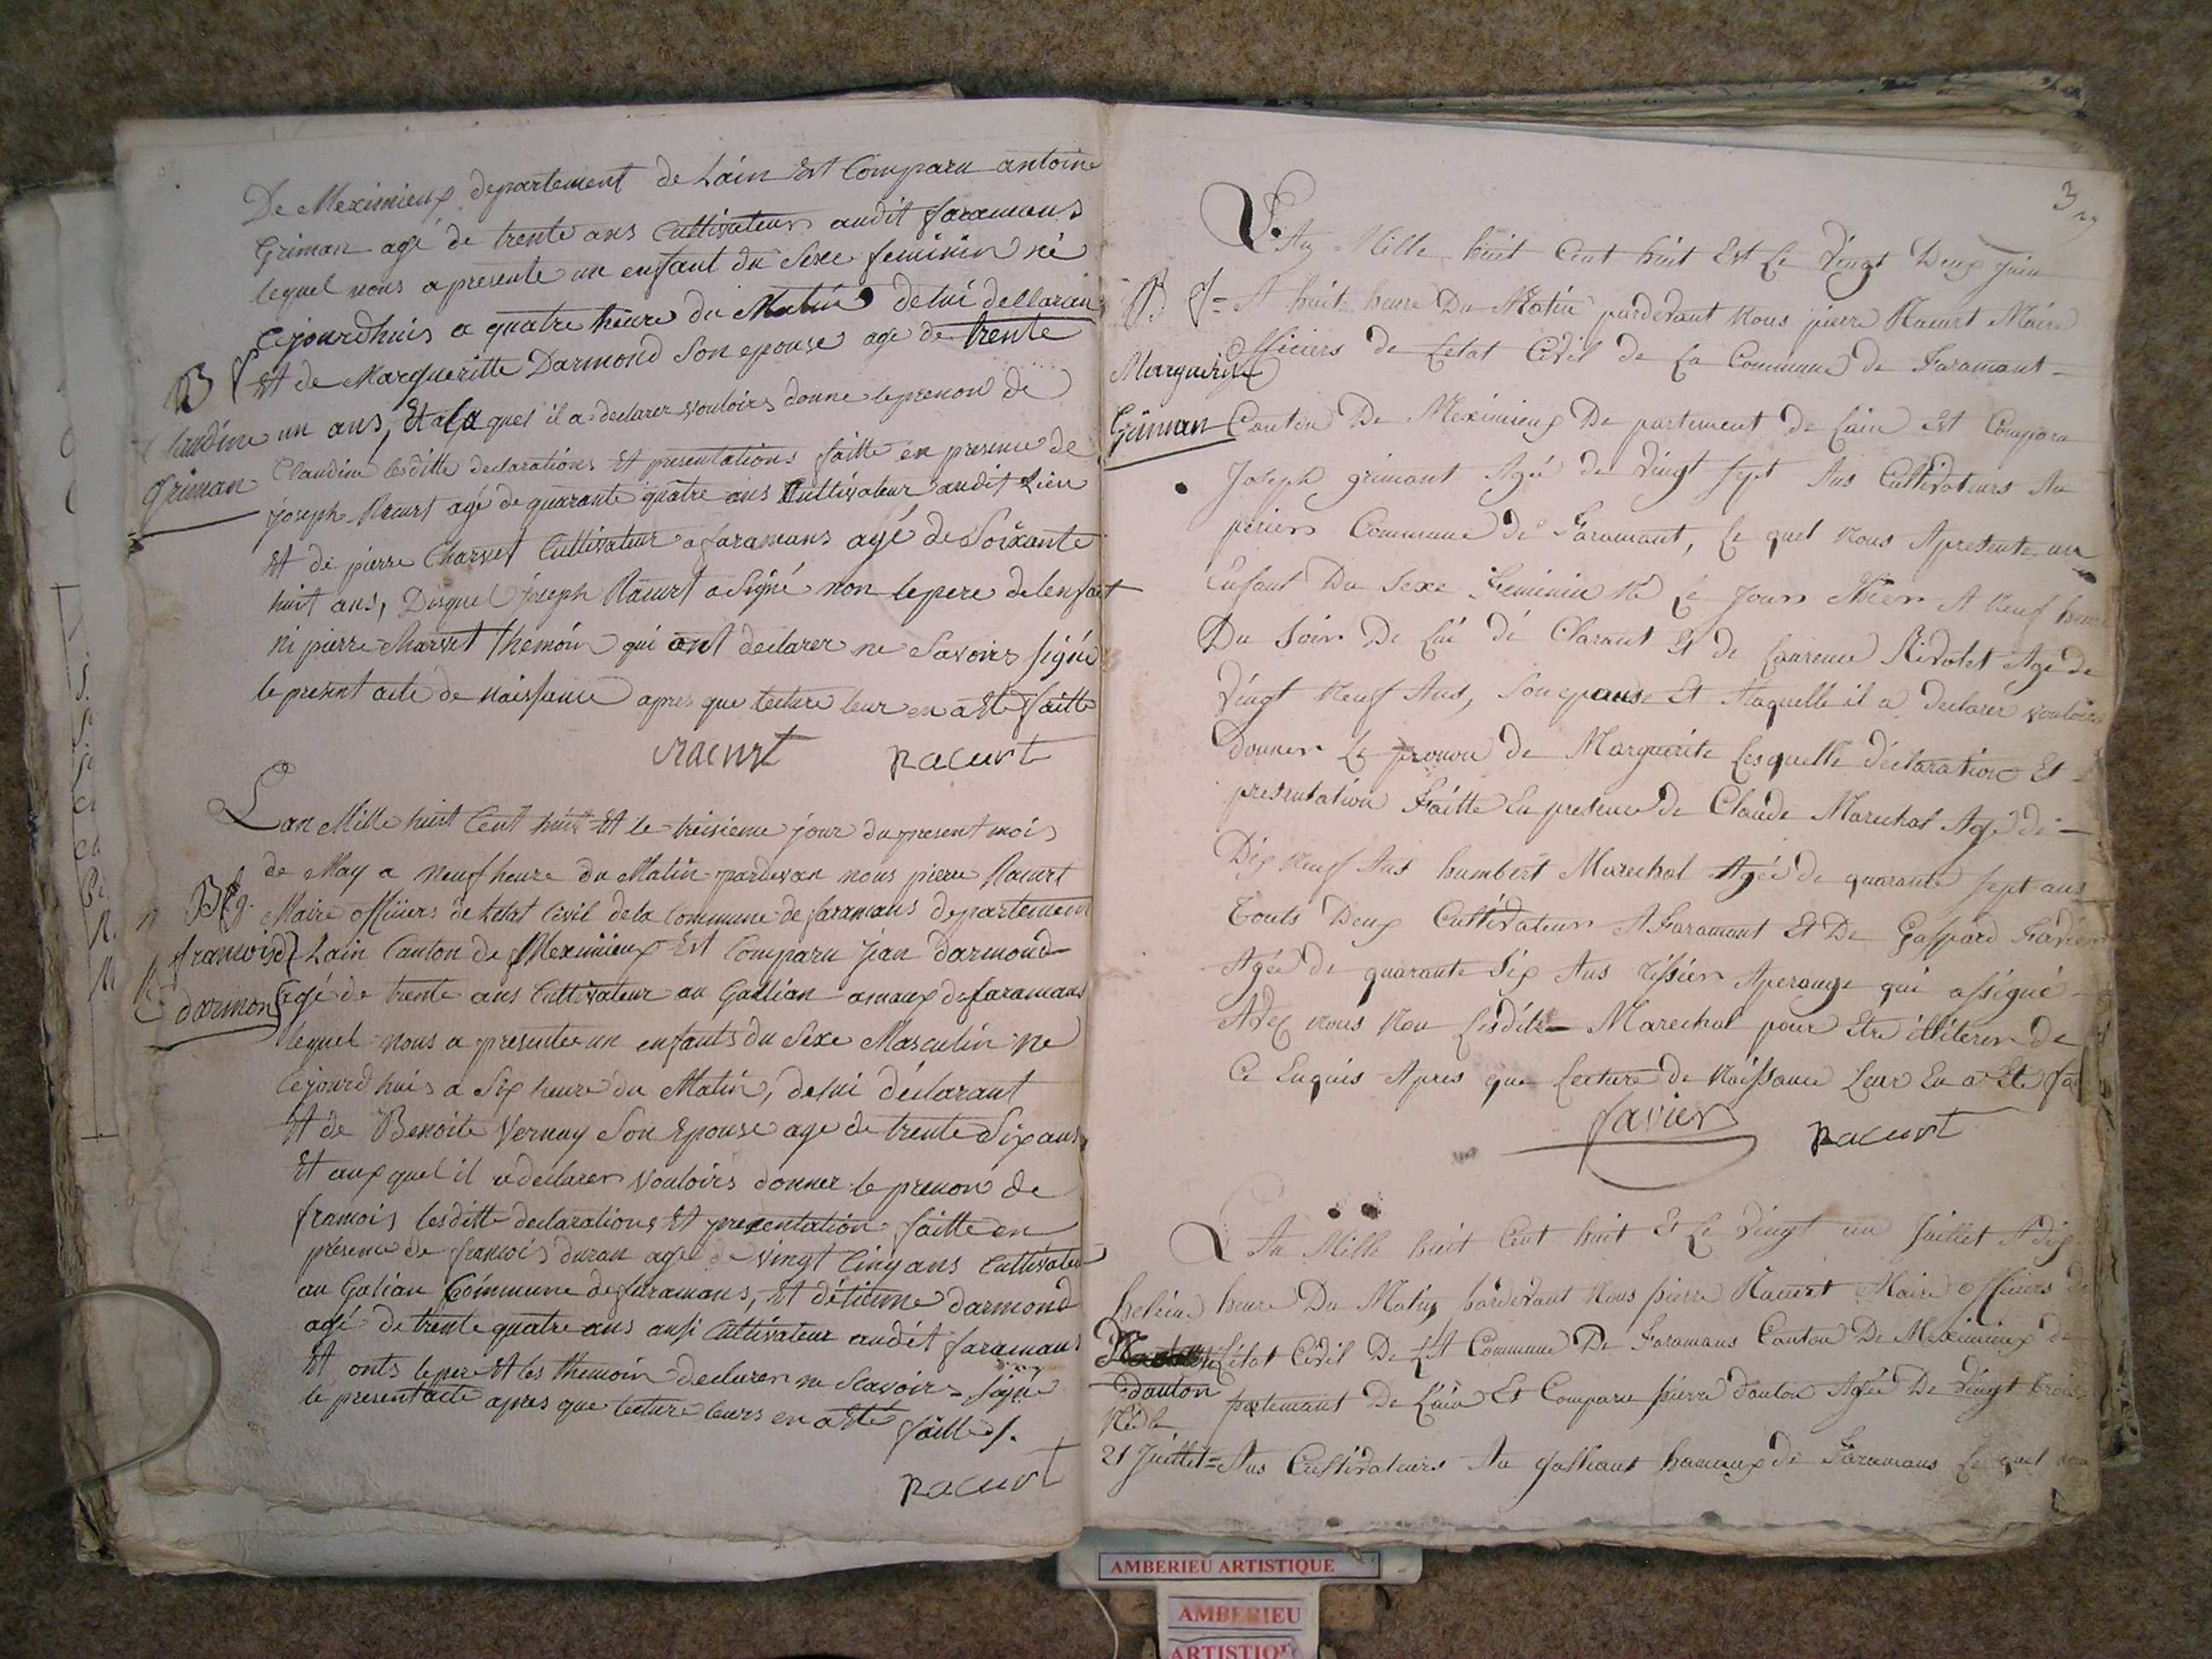 De Meximieux departement de Lain Est Comparu antoine
Griman agé de trente ans Cultivateur audit faramans
lequel nous a presente un enfant du Sexe feminin né
Cejourdhuis a quatre heure du Matin de lui dellaran
Et de Margueritte Darmond Son epouse age de trente
un ans, Et a la quel il a declarer vouloirs donne le prenon de
Claudine lesditte declarations Et presentations faitte en presence de
joseph Racurt agé de quarante quatre ans Cultivateur audit Lieu
Et de pierre Charvet Cultivateur a faramans agé de Soixante
huit ans, Desquel joseph Racurt a Signé non le pere de lenfant
ni pierre Charvet themoin qui ont declarer ne Savoirs signé
le present acte de naissance apres que lecture leur en a Eté faitte
B f
Claudine
Griman
racurt racurt
Lan Mille huit Cent huit Et le treisieme jour du present mois
de May a neuf heure du Matin pardevan nous pierre Racurt
Maire officiers de letat Civil de la Commune de faramans departement
Lain Canton de Meximieux Est Comparu jean darmond
agé de trente ans Cultivateur au Gallian amaux de faramans
lequel nous a presentee un enfants du Sexe Masculin ne
Cejourdhuis a Six heure du Matin, de lui déclarant
Et de Benoite Vernay Son Epouse age de trente Six ans,
Et aux quel il a declarer vouloirs donner le prenon de
francois lesditte declarations Et presentation faitte en
presence de francois duran agé de vingt Cinq ans Cultivateu
au Galian Commune de faramans, Et détienne darmond
agé de trente quatre ans ausi Cultivateur audit faramans
Et onts le pere Et les themoin declarer ne Scavoirs signé
le present acte apres que lecture leurs en a Eté
faitte /.
B g.
francois
darmon
racurt
3
L'An Mille huit Cent huit Est Le Vingt Deux Juin
A huit heure Du Matin pardevant Nous pierre Racurt Maire
Officiers de Letat Civil de La Commune de Faramant
Canton De Meximieux De partement de Lain Est Compara
Joseph grimant Agé de Vingt Sept Ans Cultivateurs Au
perier Commune de Faramant, Le quel Nous Apresente un
Enfant Du Sexe Feminin Né Le Jours Hier A Neuf heure
Du Soir De Lui dé Clarant Et de Laurence Rivolet Agé de
Vingt Neuf Ans, Son epouse Et Alaquelle il a Declarer vouloirs
Donner Le prenon de Marguerite Lesquelle déclaration Et
presentation Faitte En presence de Claude Marechal Agé de
Dix Neuf Ans humbert Marechal Agée de quarante sept ans
touts Deux Cultivateur A Faramant Et De Gaspard Favier
Agée de quarante Six Ans tissier Aperouge qui assigné
Avec nous Non Lesdits Marechal pour Etre illiterer de
Ce Enquis Apres que Lecture de Naissance Leur En a Eté fa
B f
Marguerite
Griman
favier racurt
L An Mille huit Cent huit Et Le Vingt un Juillet A dix
heure Du Matin pardevant Nous pierre Racurt Maire officiers de
Létat Civil De LA Commune De Faramans Canton De Meximieux de
partement De Lain Et Comparu pierre douton Agée De Vingt trois
Ans Cultivateurs Au galliant hamaux de Faramans Le quel nou
heleine
douton
Né le
21 Juillet
AMBERIEU ARTISTIQUE
AMBERIEU
ARTISTIQ